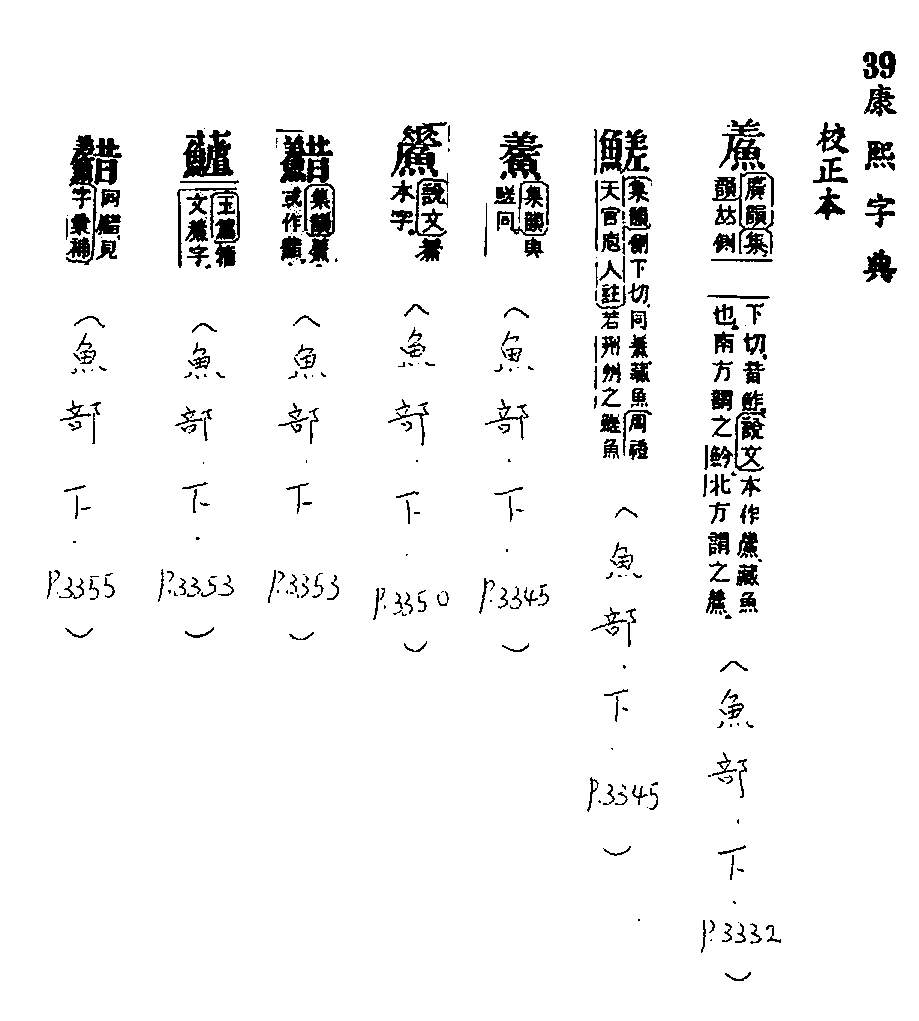 39康熙字典
校正本
廣韻集
韻𠀤側
下切音鮓說文本作
藏魚
也南方謂之魿北方謂之
(魚部.下.P.3332)
集韻側下切同
藏魚周禮
天官庖人註若荊州之
魚
(魚部.下.P.3345)
集韻與
同
(魚部.下.P.3345)
說文
本字
(魚部.下.P.3350)
集韻
或作
(魚部.下.P.3353)
玉篇籀
文
字
(魚部.下.P.3353)
同
見
字彙補
(魚部.下.P.3355)